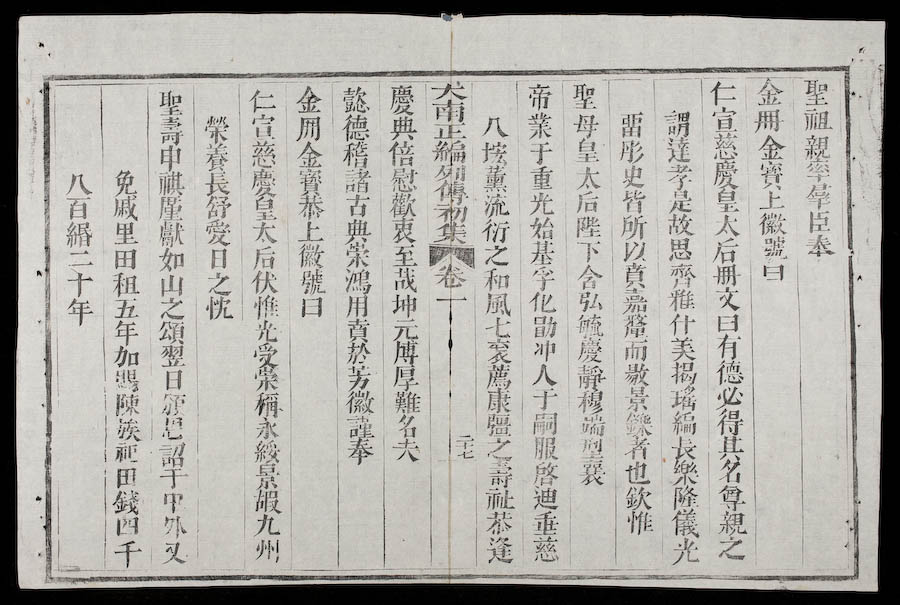 聖祖親率羣臣奉
金冊金寶上徽號曰
仁宣慈慶皇太后册文曰有德必得其名尊親之
謂達孝是故思齊雅什美揭瑤編長樂隆儀光
畱彤史皆所以賁嘉釐而敭景鑠者也欽惟
聖母皇太后陛下含弘毓慶靜穆端型襄
帝業于重光始基孚化勖冲人于嗣服啓迪垂慈
八垓薰流衍之和風七袠薦康彊之壽祉恭逢
大南正編列傳初集 卷二 二十七
慶典倍慰歡衷至哉坤元厚難名夫
懿德稽諸古典崇鴻用賁於芳徽謹奉
金冊金寶恭上徽號曰
仁宣慈慶皇太后伏惟光受崇稱永綏景嘏九州
榮養長舒愛日之忱
聖壽申祺屢獻如山之頌翌日頒恩詔于中外又
免戚里田租五年加賜陳族祀田錢四千
八百緡二十年